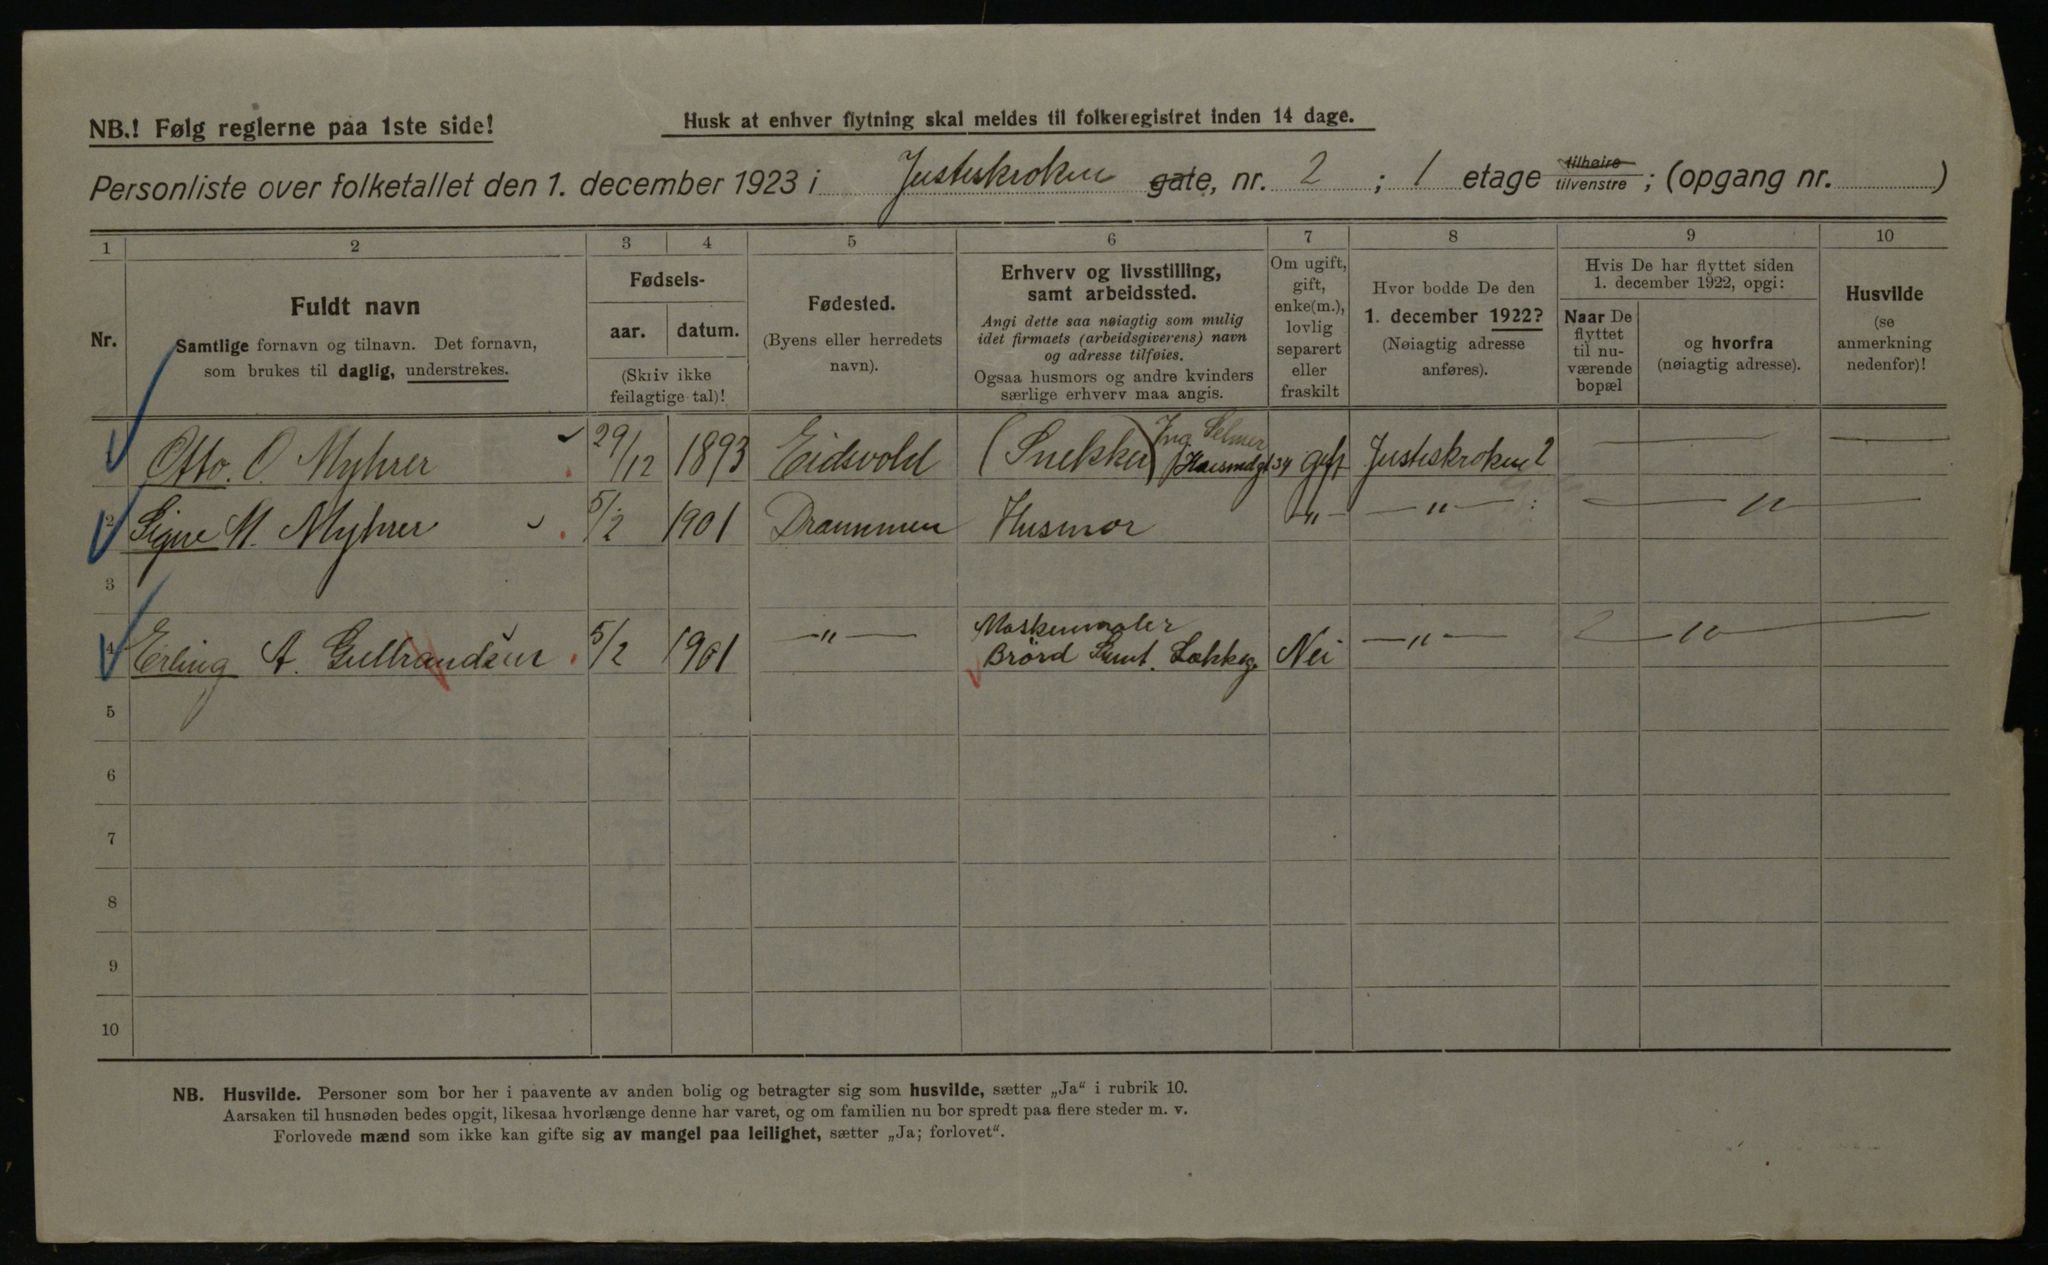 NB.! Følg reglerne paa 1ste side!
Husk at enhver flytning skal meldes til folkeregistret inden 14 dage.
Personliste over folketallet den 1. december 1923 i Justiskroken gate, nr. 2 ; 1 etage tilhøire tilvenstre ; (opgang nr. )
1 2 3 4 5 6 7 8 9 10
Nr.
Fuldt navn
Samtlige fornavn og tilnavn. Det fornavn,
som brukes til daglig, understrekes.
Fødsels-
aar. datum.
(Skriv ikke
feilagtige tal)!
Fødested.
(Byens eller herredets
navn).
Erhverv og livsstilling,
samt arbeidssted.
Angi dette saa nøiagtig som mulig
idet firmaets (arbeidsgiverens) navn
og adresse tilføies.
Ogsaa husmors og andre kvinders
særlige erhverv maa angis.
Om ugift,
gift,
enke(m.),
lovlig
separert
eller
fraskilt
Hvor bodde De den
1. december 1922?
(Nøiagtig adresse
anføres).
Hvis De har flyttet siden
1. december 1922, opgi:
Naar De
flyttet
til nu-
værende
bopæl
og hvorfra
(nøiagtig adresse).
Husvilde
(se
anmerkning
nedenfor)!
Otto. O. Myhrer 29/12 1893 Eidsvold (Snekker) Ing Selmer 34 gift Justiskroken 2 — —
2 Signe M. Myhrer 5/2 1901 Drammen Husmor —"— —"— — " —
3
4 Erling A. Gulbrandsen 5/2 1901 —"— Brørd Sunt. Nei —"— — " —
5
6
7
8
9
10
NB. Husvilde. Personer som bor her i paavente av anden bolig og betragter sig som husvilde, sætter „Ja" i rubrik 10.
Aarsaken til husnøden bedes opgit, likesaa hvorlænge denne har varet, og om familien nu bor spredt paa flere steder m. v.
Forlovede mænd som ikke kan gifte sig av mangel paa leilighet, sætter „Ja; forlovet".